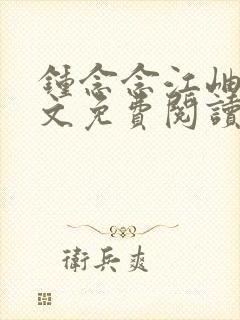 鍾念念江岫
文免費閱讀
衛兵爽